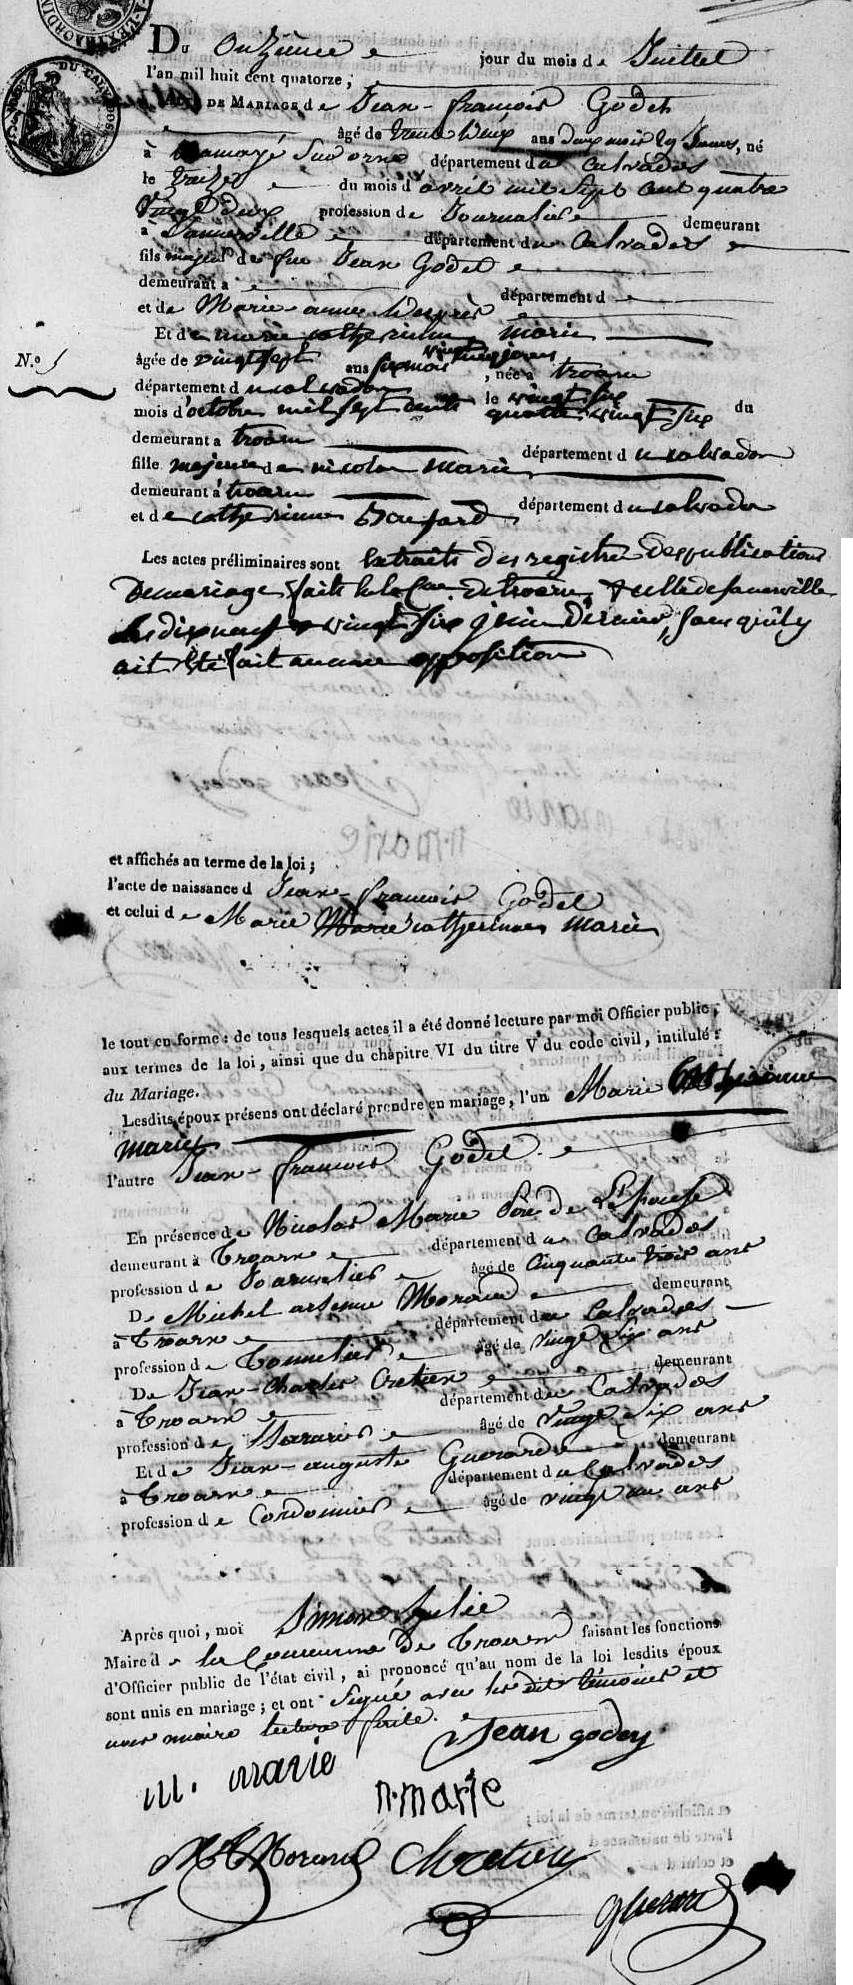 Du onzieme jour du mois de Juillet
l'an mil huit cent quatorze ;
Acte de Mariage de Jean-françois Godel
âgé de trente deux ans deux mois 29 Jours, né
à amayé Sur orne département du Calvados
le treize du mois d'avril mil sept cent quatre
Vingt deux profession de Journalier demeurant
à Sannerville département du Calvados
fils majeur de feu Jean Godel
demeurant a département d
et de Marie anne
Et de marie catherinne marie
âgée de vingt sept ans six mois jours, née a troarn
département du calvados le vingt six du
mois d'octobre mil sept cents quatre vingt six
demeurant a troarn département du calvados
fille majeure de nicolas marie
demeurant à troarn département du calvados
et de catherinne
N.º 5
Les actes préliminaires sont extraits des registres des publications
De mariage faits troarn & celle de sanerville
les dix neuf & vingt six juin dernier, sans qu'il y
ait été fait aucune opposition
et affichés au terme de la loi ;
l'acte de naissance d Jean-françois Godel
et celui de Marie catherinne marie
le tout en forme : de tous lesquels actes il a été donné lecture par moi Officier public,
aux termes de la loi, ainsi que du chapitre VI du titre V du code civil, intitulé :
du Mariage.
Lesdits époux présens ont déclaré prendre en mariage, l'un Marie Catherinne
marie
l'autre Jean-françois Godel.
En présence de Nicolas Marie Père de L'épouse
demeurant à Troarn département du Calvados
profession de Journalier âgé de Cinquante trois ans
De Michel arsenne Morand demeurant
à Troarn département du Calvados
profession de Tonnelier âgé de vingt six ans
De Jean-Charles Cretien demeurant
à Troarn département du Calvados
profession de âgé de Vingt six ans
Et de Jean-auguste Guerard demeurant
à Troarn département du Calvados
profession de Cordonnier âgé de vingt un ans
Après quoi, moi Simon
Maire de la Commune de Troarn faisant les fonctions
d'Officier public de l'état civil, ai prononcé qu'au nom de la loi lesdits époux
sont unis en mariage ; et ont Signé avec les dits témoins et
nous maire lecture faite.
Jean godey
m. marie
n. marie
Morand Chretien
guerard